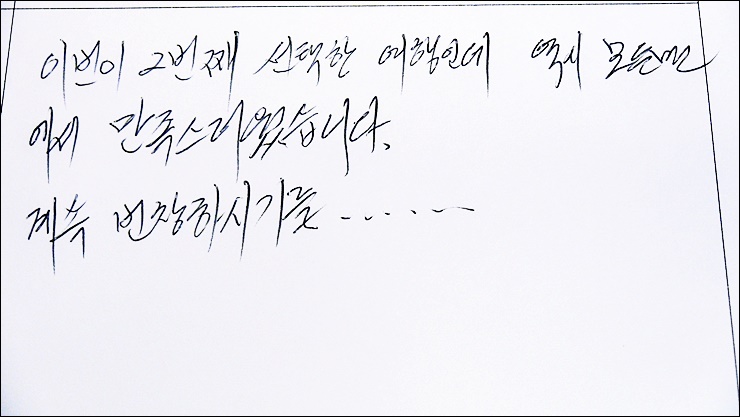 이번이 2번째 선택한 여행인데 역시 모든면
에서 만족스러웠습니다.
계속 번창하시기를 ......